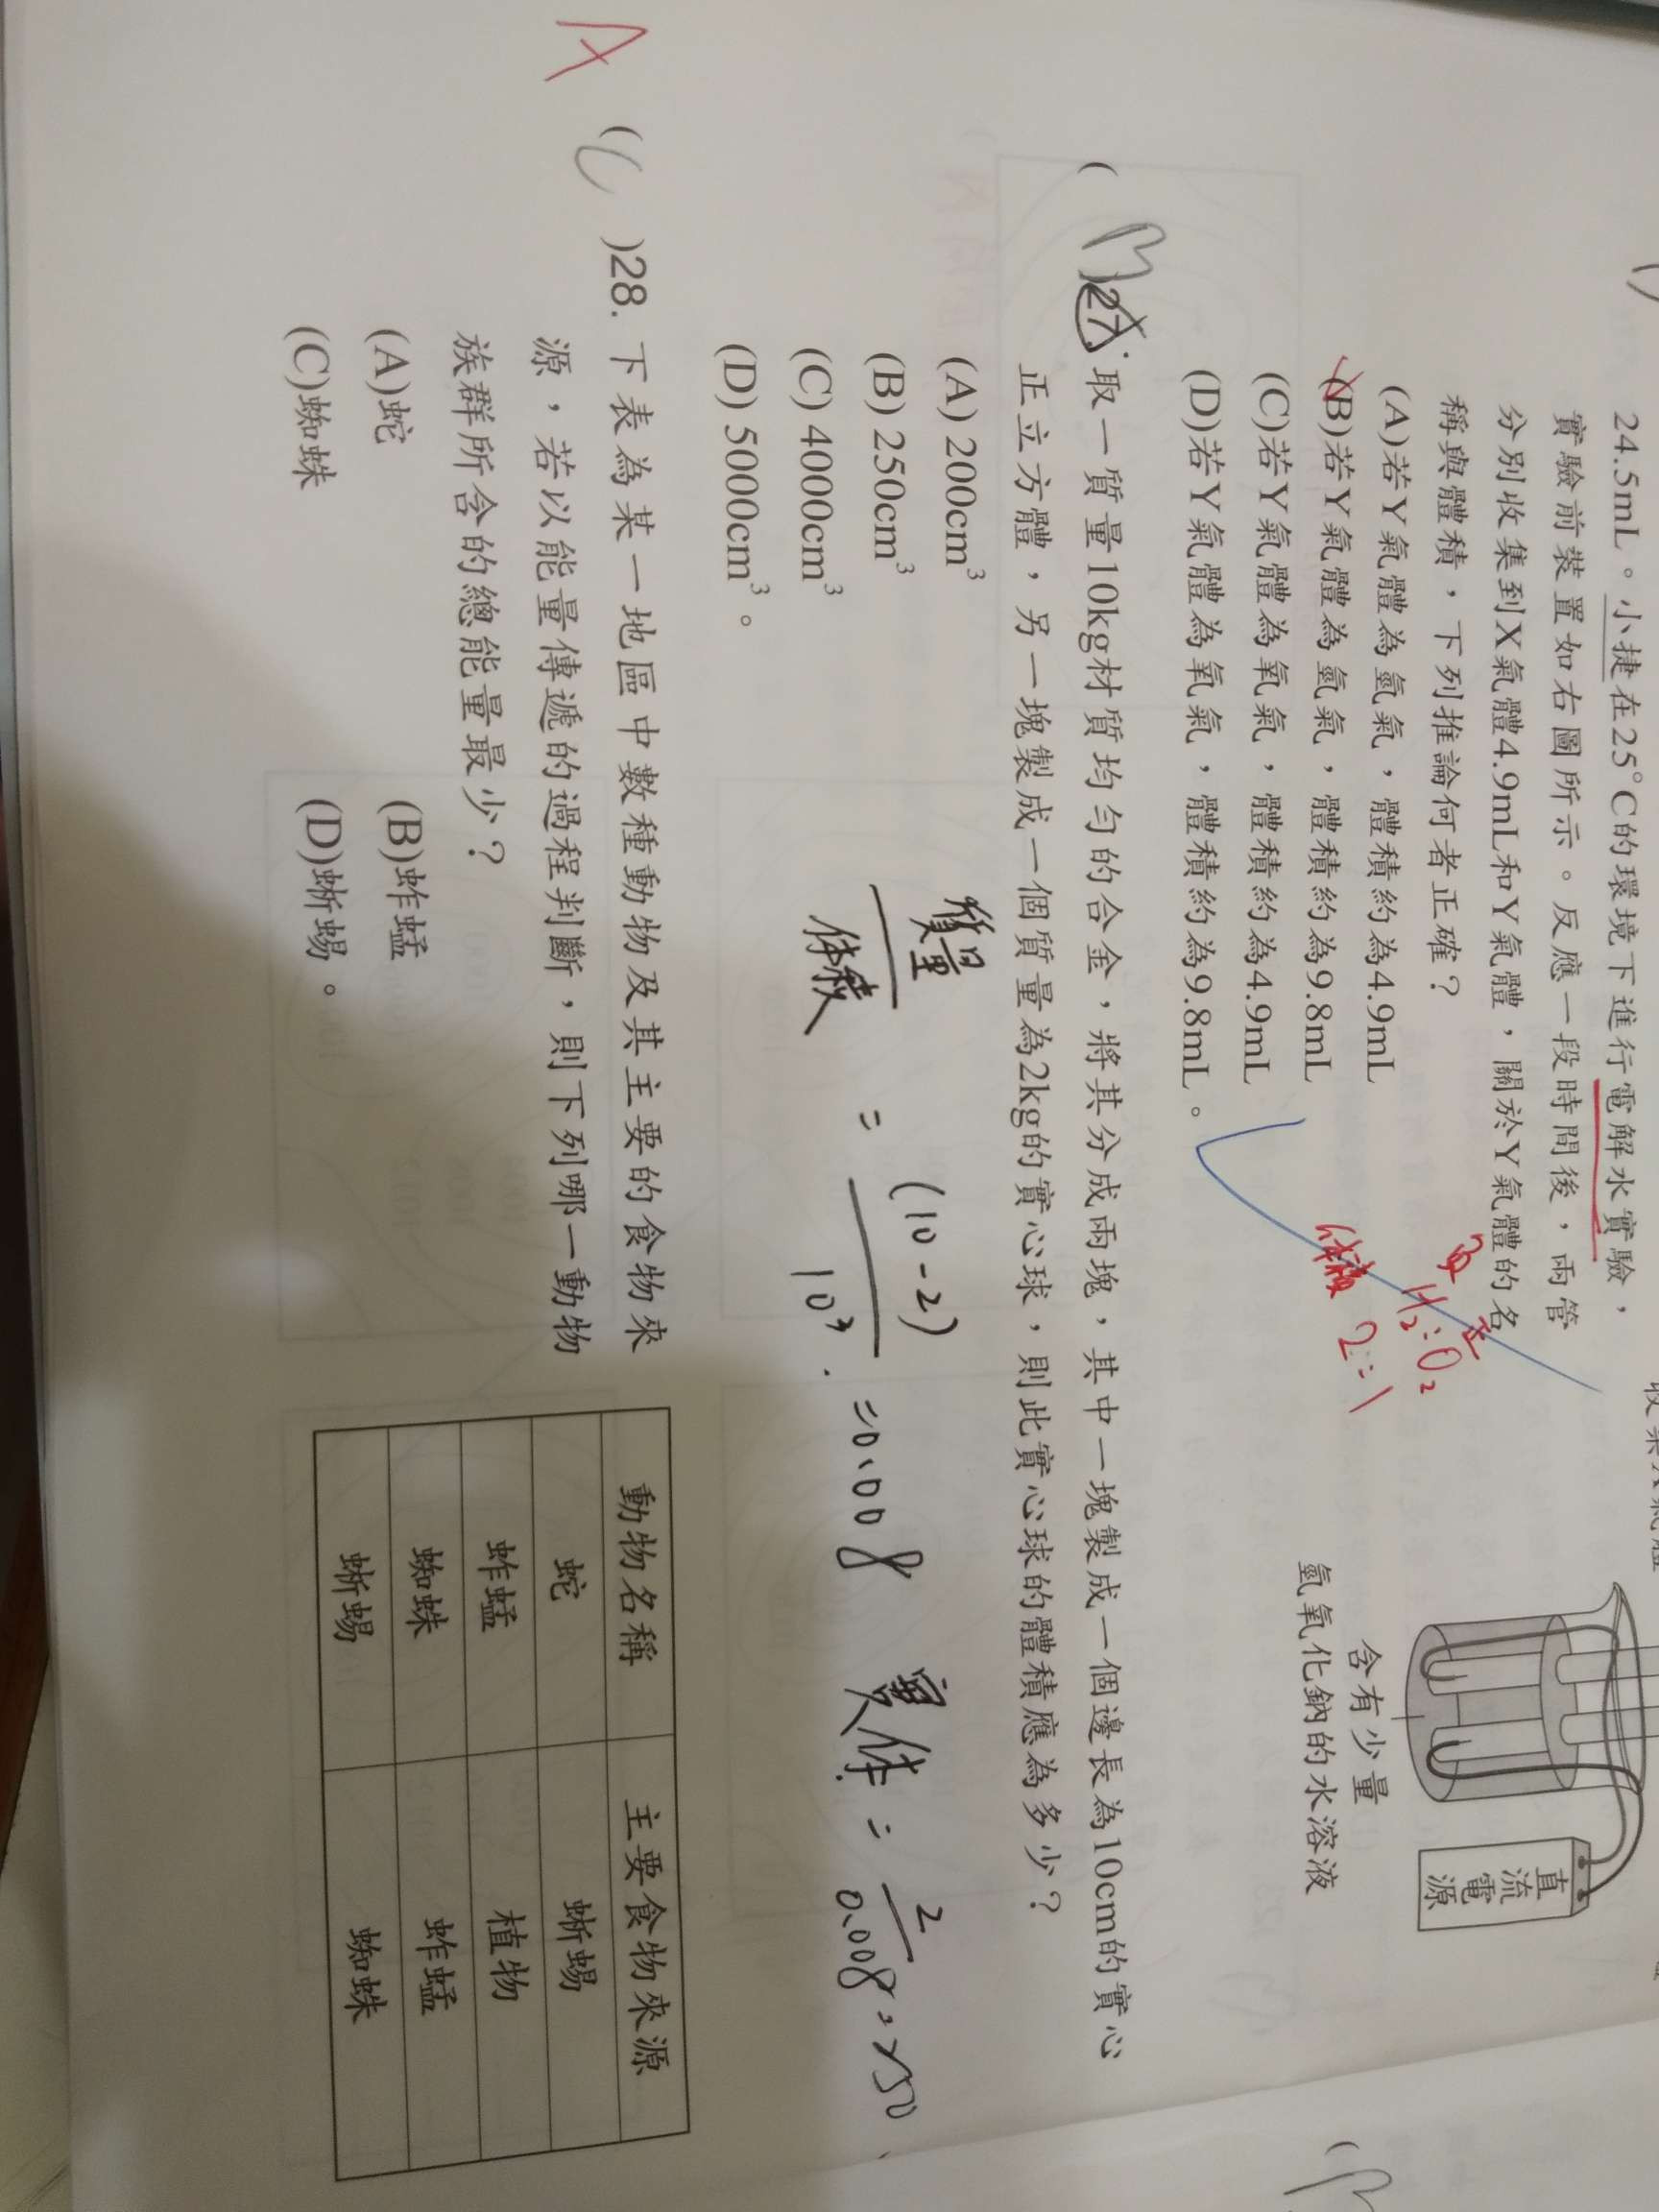 24.5mL。小捷在25°C的環境下進行電解水實驗，
實驗前裝置如右圖所示。反應一段時間後，兩管
分別收集到X氣體4.9mL和Y氣體，關於Y氣體的名
稱與體積，下列推論何者正確？
(A)若Y氣體為氫氣，體積約為4.9mL
(B)若Y氣體為氫氣，體積約為9.8mL
(C)若Y氣體為氧氣，體積約為4.9mL
(D)若Y氣體為氧氣，體積約為9.8mL。
H₂:O₂
体積 2:1
含有少量
氫氧化鈉的水溶液
直
流
電
源
( )27. 取一質量10kg材質均勻的合金，將其分成兩塊，其中一塊製成一個邊長為10cm的實心
正立方體，另一塊製成一個質量為2kg的實心球，則此實心球的體積應為多少？
(A) 200cm³
(B) 250cm³
(C) 4000cm³
(D) 5000cm³。
質量
体積
= (10-2)
10³
=0.008
=
2
0.008
=250
A
(C)28. 下表為某一地區中數種動物及其主要的食物來
源，若以能量傳遞的過程判斷，則下列哪一動物
族群所含的總能量最少？
(A)蛇 (B)蚱蜢
(C)蜘蛛 (D)蜥蜴。
動物名稱 主要食物來源
蛇 蜥蜴
蚱蜢 植物
蜘蛛 蚱蜢
蜥蜴 蜘蛛